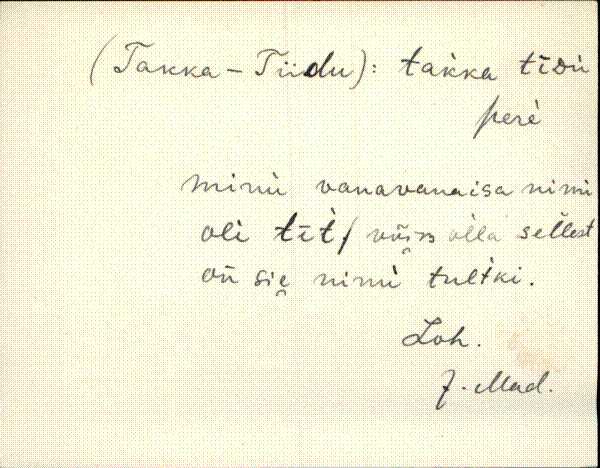 (Takka-Tiidu): takka tīdu
perè
minu vanavanaisa nimi
oli tīt, võis olla sellest
on sie nimi tultki.
Loh.
J. Mad.